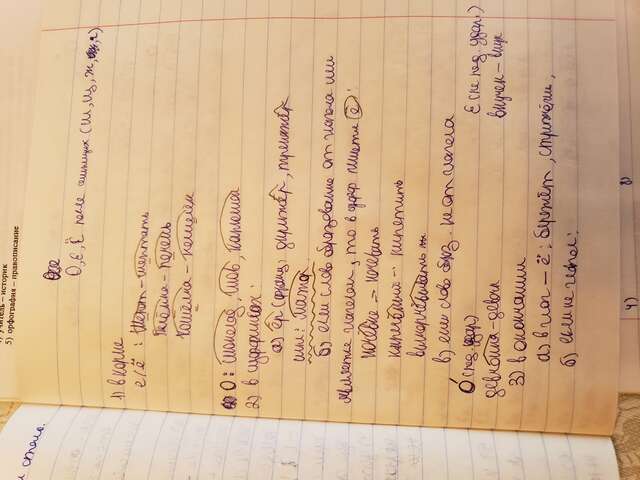 учитель – историк
5) орфография – правописание
и стало.
О, е, ё после шипящих (ш, щ, ж, ч)
1) в корне
е/ё : Шёпот – шептать
печень
Кошёлка – кошелек
О: шоколад, шов, капюшон
2) в суффиксах:
а) ёр (франц) дирижёр, тренажёр
искл: мажор
б) если слово образовано от глагола или
является глаголом, то в суфф пишется ё :
ночёвка – ночевать
кипячёный – кипятить
выкорчёвывать
в) если слово образ. не от глагола
О (под удар.) Е (не под удар.)
девчонка – девча внучек – внук
3) в окончании
а) в глаг – ё: бережёт, стрижёт,
б) если не глагол:
4) 8)